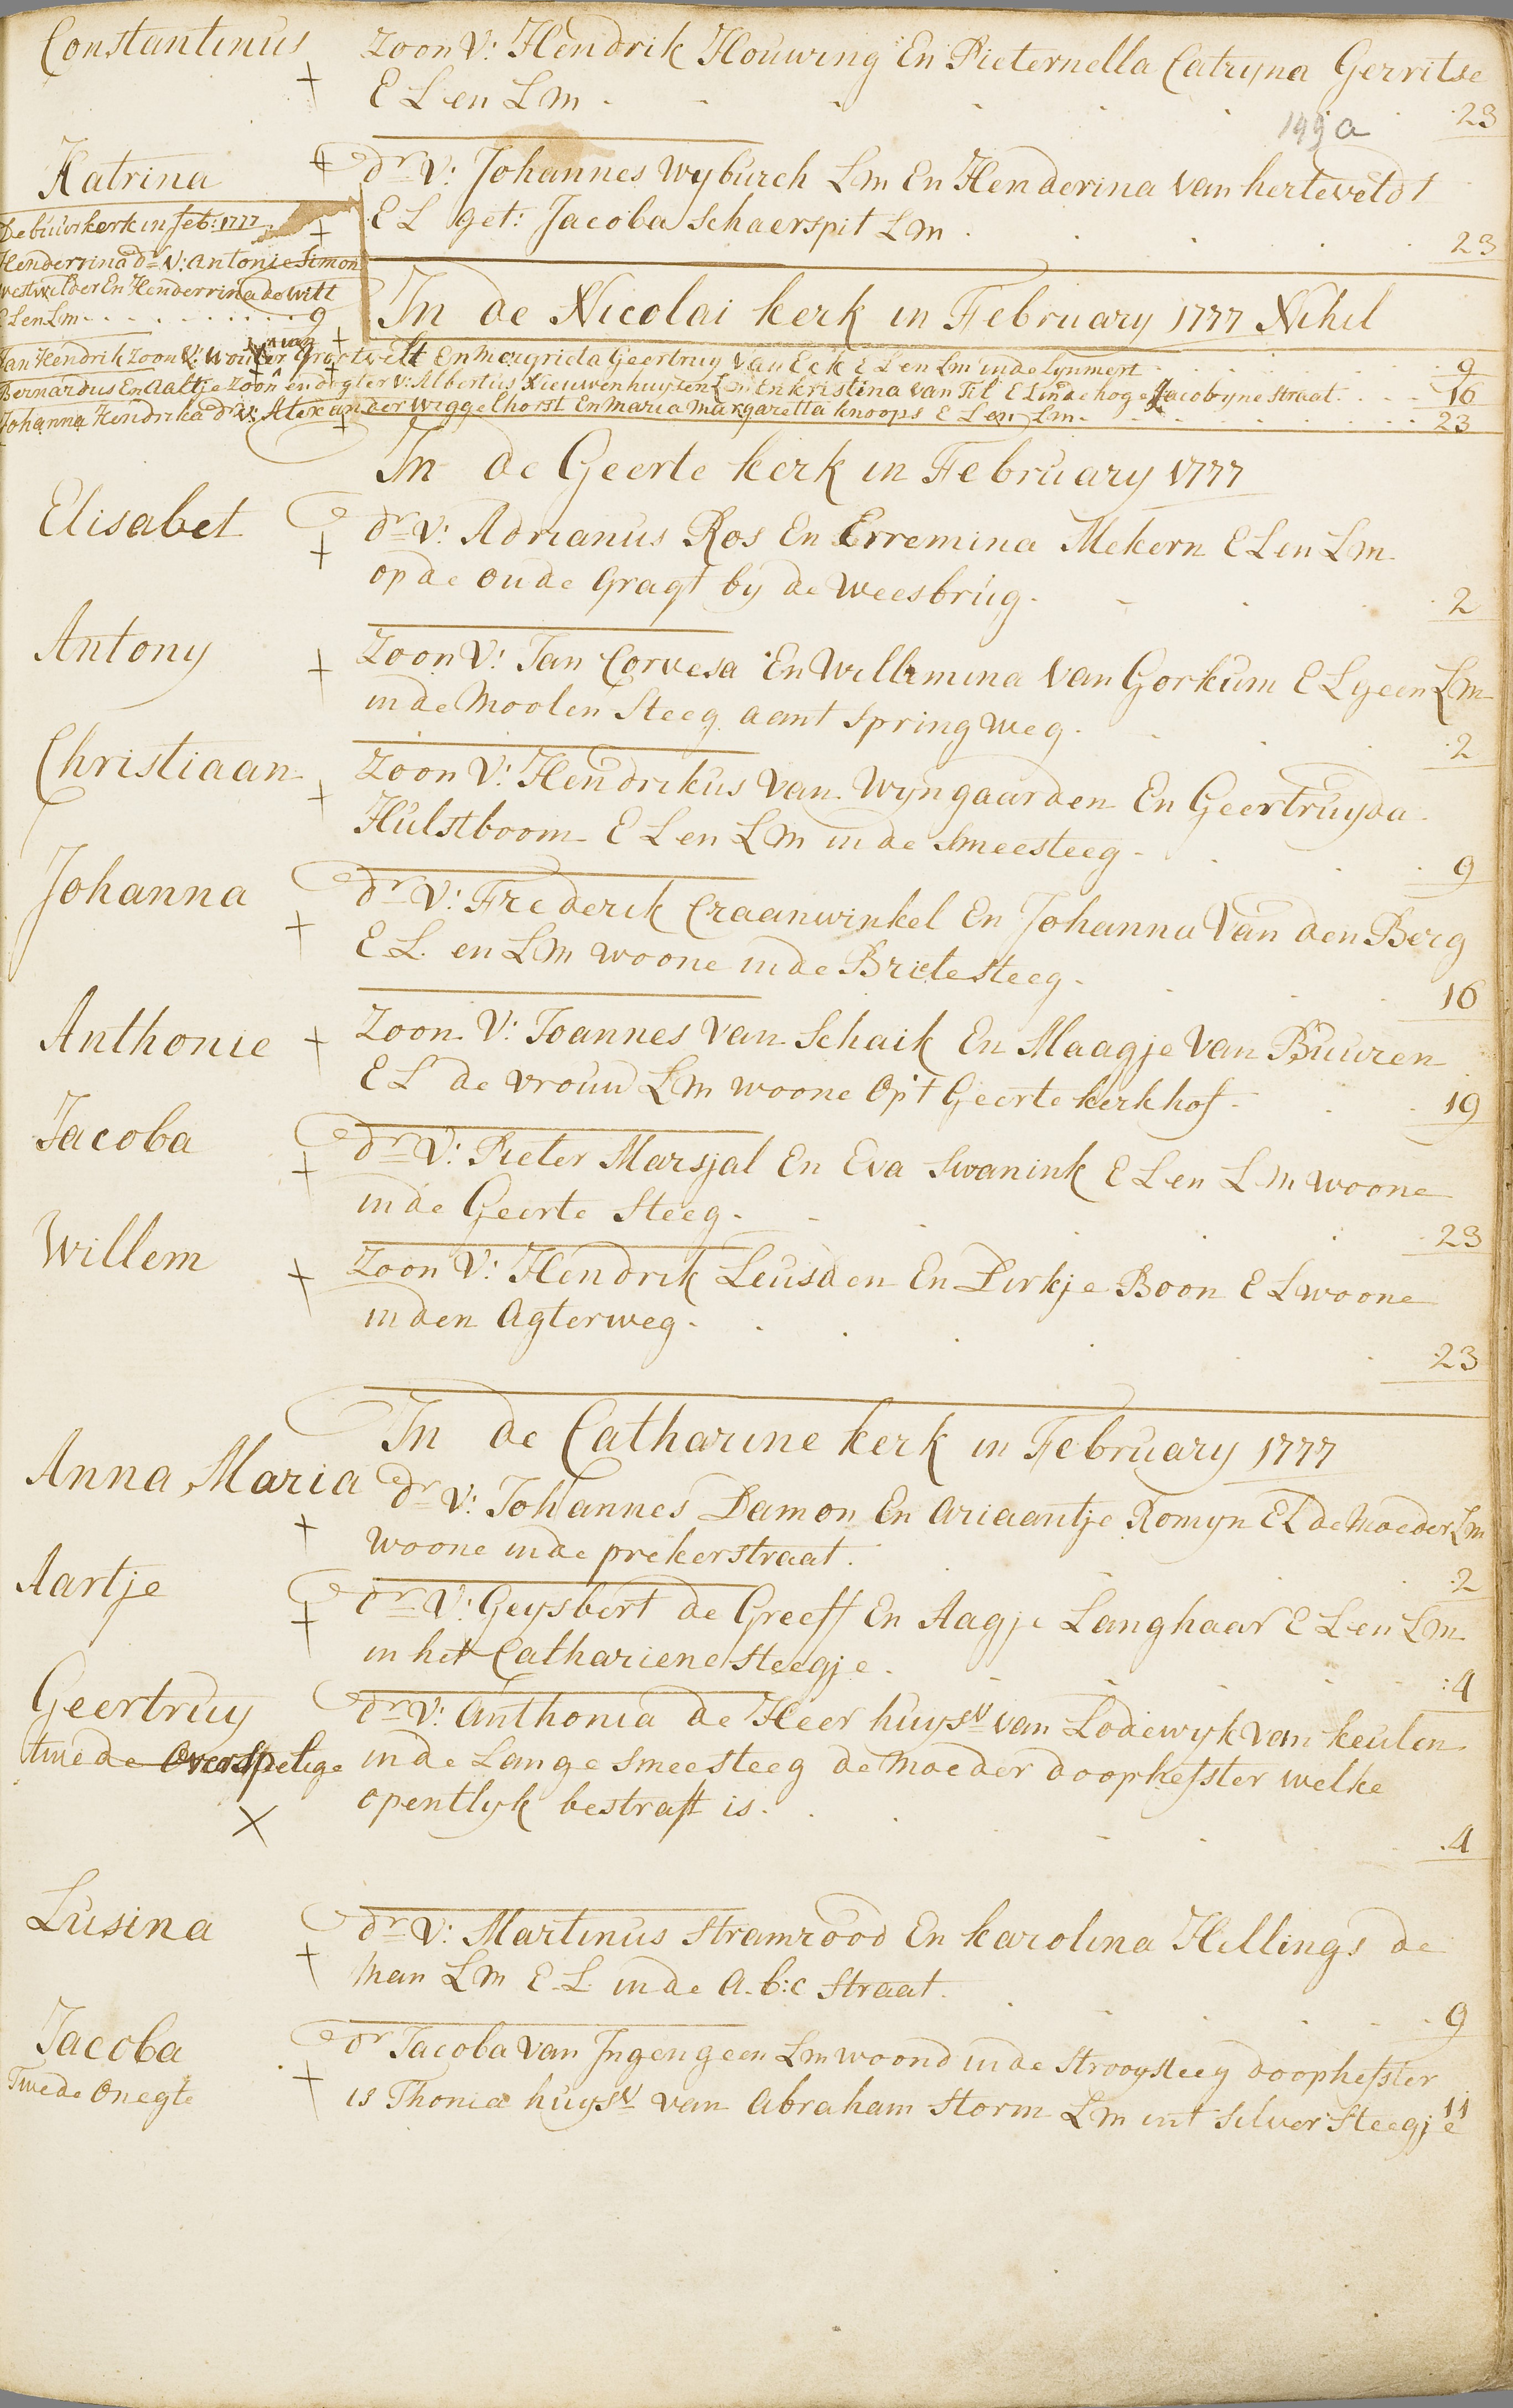 Constantinus Zoon V: Hendrik Houwing En Pieternella Catryna Gerritse
E L en L m 23
199a
Katrina dr V: Johannes Wyburch L m En Henderina van herteveldt
E L get: Jacoba Schaerspit L m 23
De buurkerk in feb: 1777
Henderrina dr V: Antonie Simon
westwelder En Henderrina de Witt
E L en L m 9
In de Nicolai kerk in February 1777 Nihil
Jan Hendrik Zoon V: Wouter Grootvelt En Margrieta Geertruy Van Eck E L en Lm in de Lynmert 9
Bernardus En Aaltje Zoon en dogter V: Albertus Nieuwenhuysen Lm En kristina van Til E L in de hoge Jacobyne straat 16
Johanna Hendrika dr V: Alexander Wiggelhorst En Maria Margaretta knoops E L en Lm 23
In de Geerte kerk in February 1777
Elisabet dr V: Adrianus Ros En Erremina Mekern E L en L m
op de oude Gragt by de Weesbrug 2
Antony Zoon V: Jan Corvesa En Willemina Van Gorkum E L geen L m
in de Moolen Steeg aant Springweg 2
Christiaan Zoon V: Hendrikus Van Wyngaarden En Geertruyda
Hulstboom E L en L m in de Smeesteeg 9
Johanna dr V: Frederik Craanwinkel En Johanna Van den Berg
E L en L m woone in de Brietesteeg 16
Anthonie Zoon V: Joannes Van Schaik En Maagje Van Buuren
E L de vrouw L m woone Op't Geerte kerkhof 19
Jacoba dr V: Pieter Marsjal En Eva Swanink E L en L m woone
in de Geerte Steeg 23
Willem Zoon V: Hendrik Leusden En Dirkje Boon E L woone
in den Agterweg 23
In de Catharine kerk in February 1777
Anna Maria dr V: Johannes Damon En Ariaantje Romyn E L de Moeder L m
Woone in de prekerstraat 2
Aartje dr V: Geysbert de Greeff En Aagje Langhaar E L en L m
in het Cathariene Steegje 4
Geertruy dr V: Anthonia de Heer huysv van Lodewyk van keulen
twede Overspelige in de Lange Smeesteeg de Moeder doophefster welke
opentlyk bestraft is 4
Lusina dr V: Martinus Stramrood En karolina Hellings de
Man L m E L in de A.b:c Straat 9
Jacoba dr Jacoba van Ingen geen L m woond in de Strooysteeg doophefster
Twede Onegte is Thonia huysv van Abraham Storm L m int Silver Steegje 11